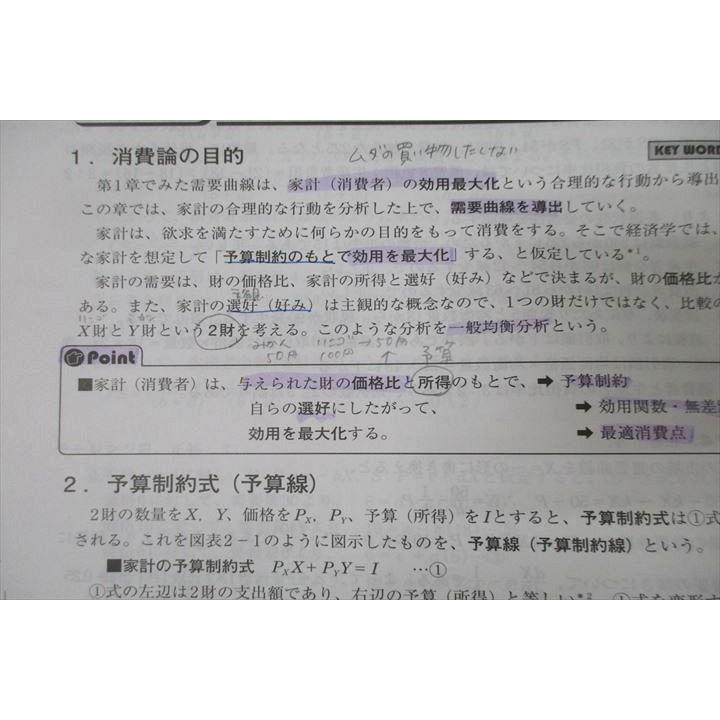 1．消費論の目的
ムダの買い物したくない
KEY WORD
第1章でみた需要曲線は、家計（消費者）の効用最大化という合理的な行動から導出
この章では、家計の合理的な行動を分析した上で、需要曲線を導出していく。
家計は、欲求を満たすために何らかの目的をもって消費をする。そこで経済学では、
な家計を想定して「予算制約のもとで効用を最大化」する、と仮定している*1。
家計の需要は、財の価格比、家計の所得と選好（好み）などで決まるが、財の価格比が
ある。また、家計の選好（好み）は主観的な概念なので、1つの財だけではなく、比較の
X財とY財という2財を考える。このような分析を一般均衡分析という。
みかん リンゴ →50円 予算
50円 100円 ↑
Point
■家計（消費者）は、与えられた財の価格比と所得のもとで、➡予算制約
自らの選好にしたがって、 ➡効用関数・無差
効用を最大化する。 ➡最適消費点
2．予算制約式（予算線）
2財の数量をX，Y、価格をPX，PY、予算（所得）をIとすると、予算制約式は①式
される。これを図表2－1のように図示したものを、予算線（予算制約線）という。
■家計の予算制約式 PXX＋PYY＝I …①
①式の左辺は2財の支出額であり、右辺の予算（所得）と等しい*2。①式を変形す